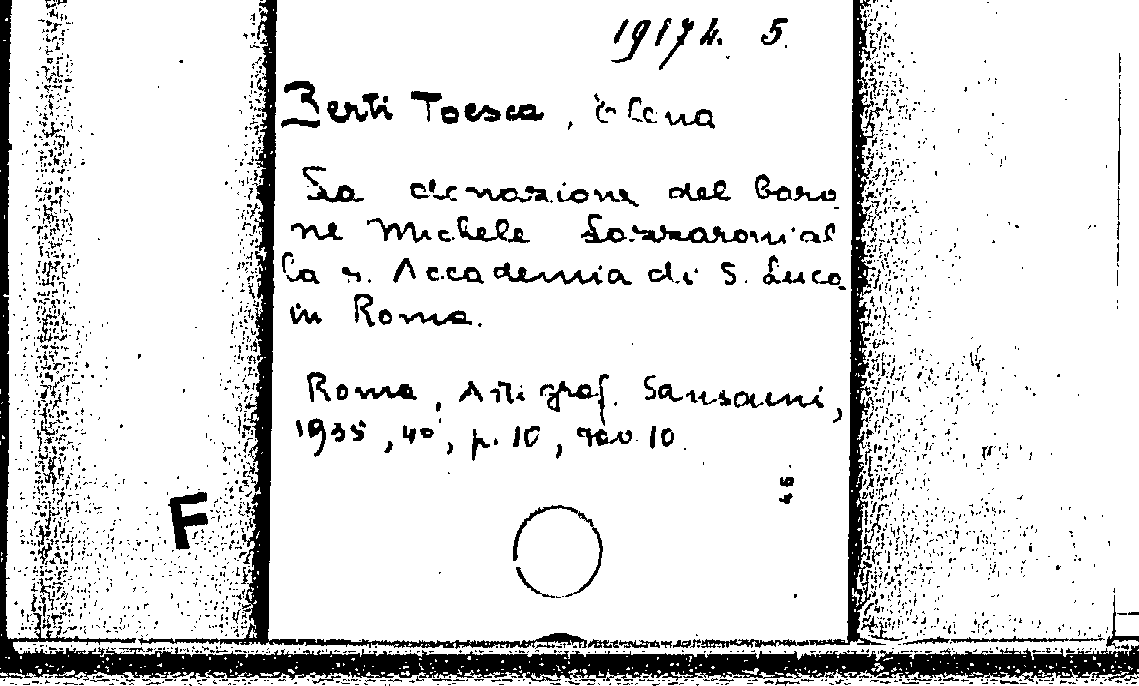 19174. 5.
Berti Toesca, Elena
La donazione del baro
ne Michele Lazzaroni al
la r. Accademia di S. Luca
in Roma.
Roma, Arti graf. Sansaini,
1935, 4°, p. 10, tav. 10.
45
F